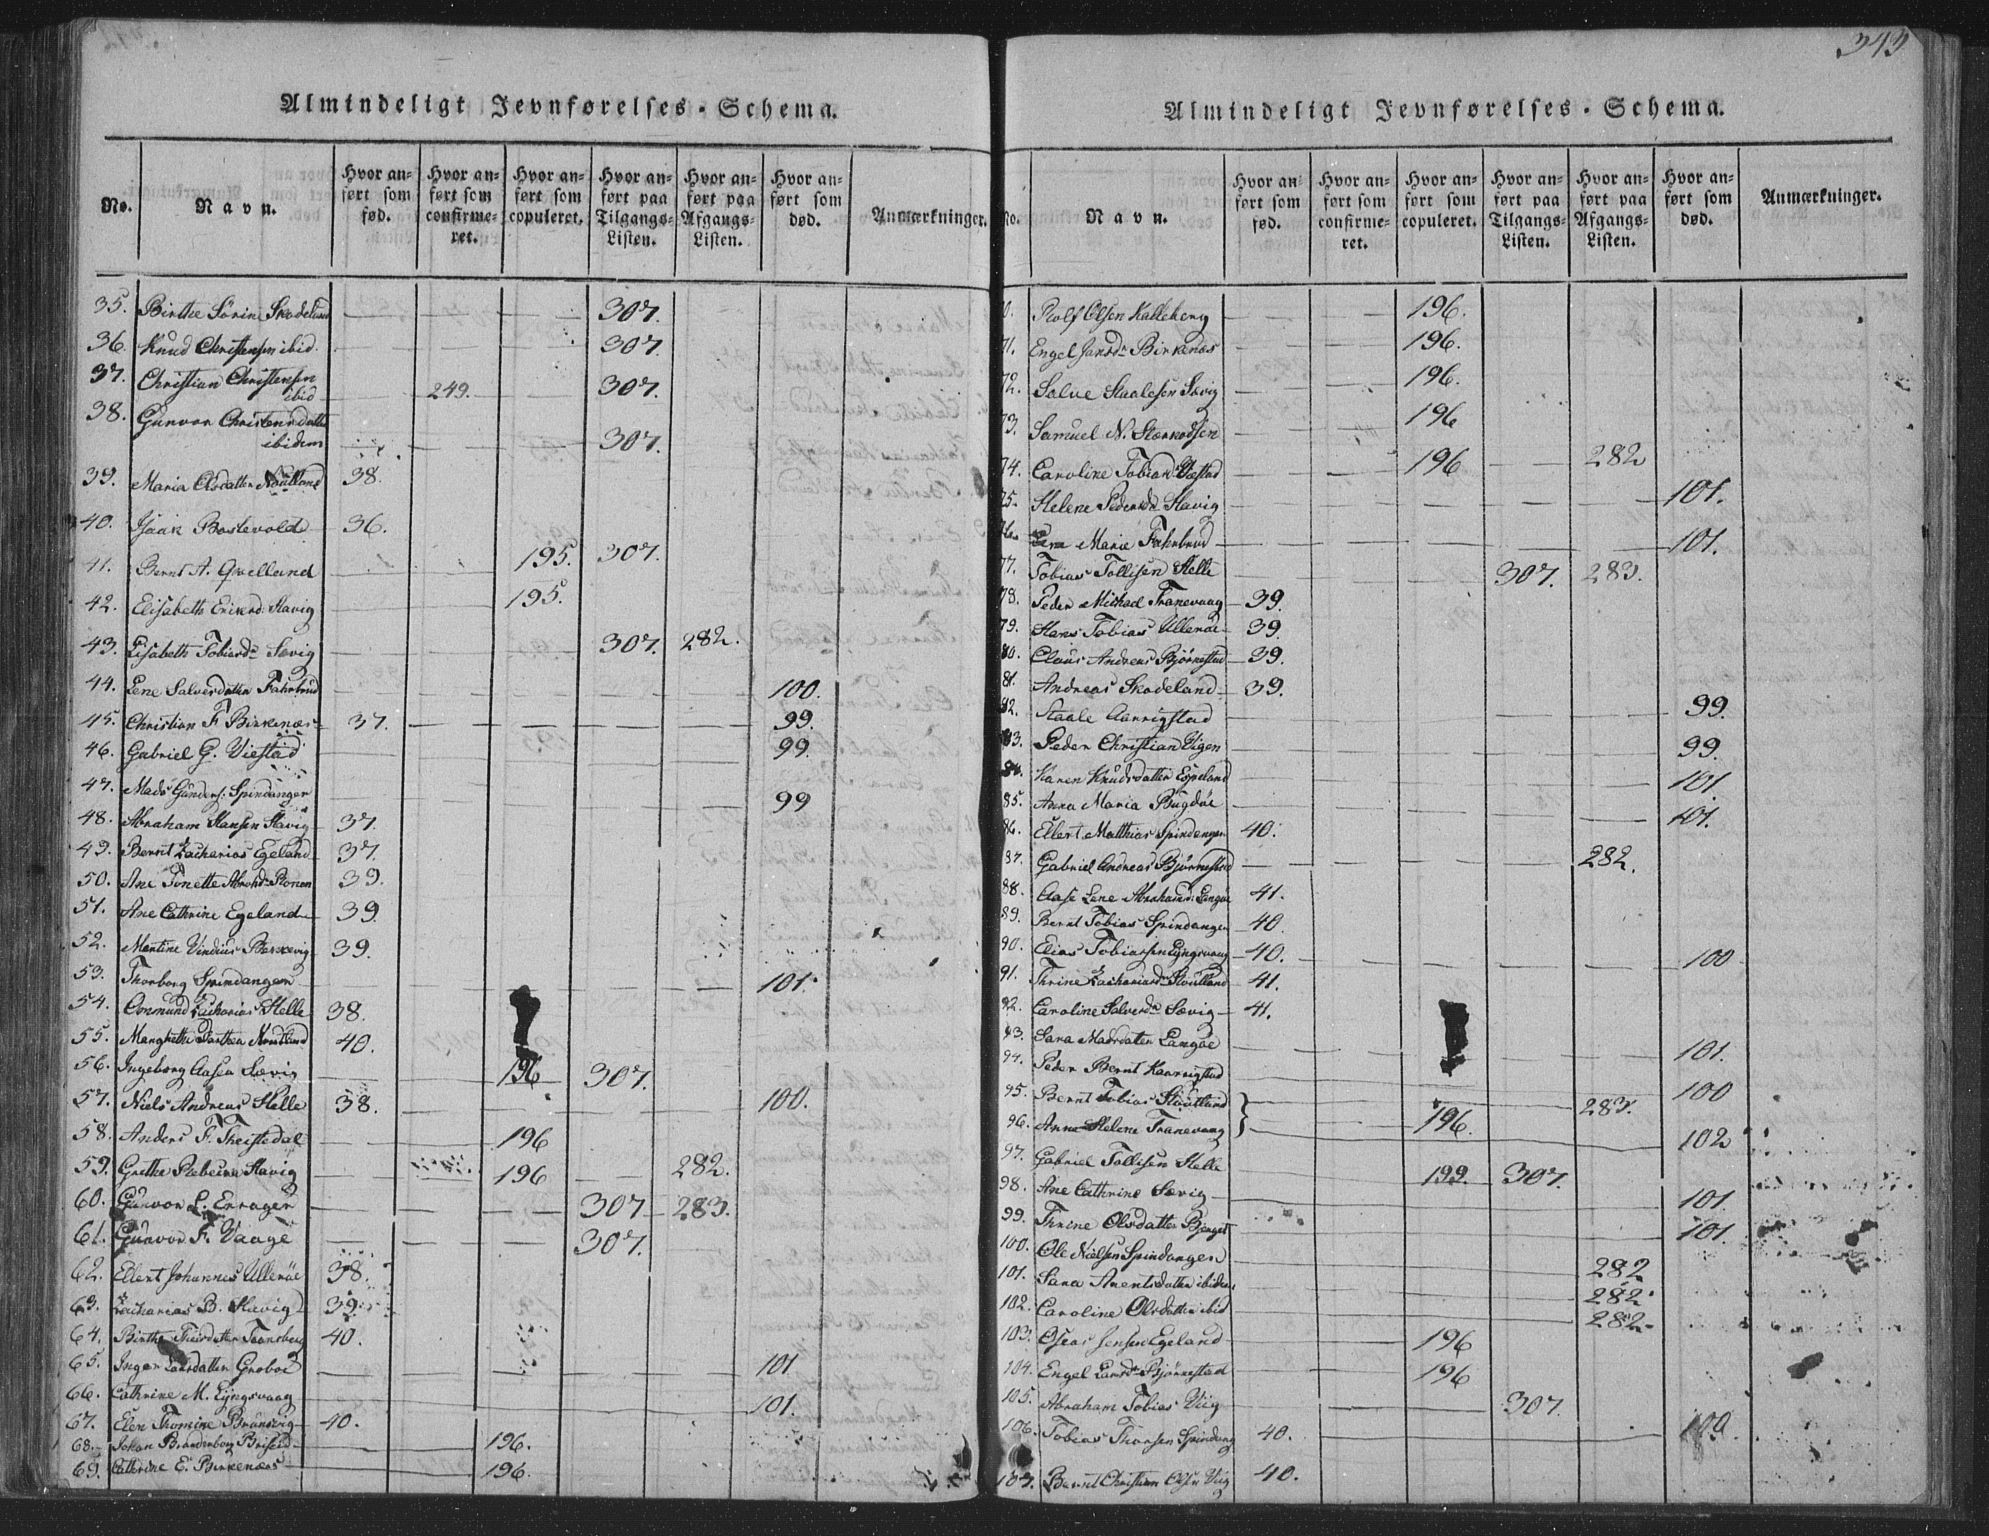 343
Almindeligt Jevnførelses-Schema.
No. Navn. Hvor anført som fød. Hvor anført som confirmeret. Hvor anført som copuleret. Hvor anført paa Tilgangs-Listen. Hvor anført paa Afgangs-Listen. Hvor anført som død. Anmærkninger.
35. Birthe Sørine Skodeland 307.
36. Knud Christensen ibid. 307.
37. Christian Christensen
ibid 249. 307.
38. Gunvor Christensdatter
ibidem 307.
39. Maria Olsdatter 38.
40. Isaak Bostevold 36.
41. Bernt A. Qvelland 195. 307.
42. Elisabeth Ericksd. Havig 195.
43. Elisabeth Tobiasd. Sævig 307. 282.
44. Lene Salvesdatter 100.
45. Christian F. Birkenæs 37. 99.
46. Gabriel G. Viestad 99.
47. Mads Gunders. Spindangen 99
48. Abraham Hansen Havig 37.
49. Bernt Zacharias Egeland 37.
50. Ane Tonette 39.
51. Ane Cathrine Egeland 39.
52. Martine 39.
53. Thorborg Spindangen 101.
54. Zacharias Helle 38.
55. 40.
56. Ingeborg Aasen Sævig 196 307.
57. Niels Andreas Helle 38. 100.
58. Anders F. Theistedal 196
59. Grethe Rebecca Havig 196 282.
60. Gunvor L. 307 283.
61. Gunvor F. Vaage 307.
62. Ellert Johannes Ullerøe 38.
63. Zacharias B. Havig 39.
64. Birthe 40.
65. Inger Larsdatter 101
66. Cathrine M. Eyngsvaag 101.
67. Elen Thomine 40.
68. Johan Brandenborg 196.
69. Cathrine E. Birkenæs 196.
Almindeligt Jevnførelses-Schema.
No. Navn. Hvor anført som fød. Hvor anført som confirmeret. Hvor anført som copuleret. Hvor anført paa Tilgangs-Listen. Hvor anført paa Afgangs-Listen. Hvor anført som død. Anmærkninger.
0. Rolf Olsen Kalleberg 196.
71. Engel Jansd. Birkenæs 196.
72. Salve Staalesen Sævig 196.
73. Samuel N. 196
74. Caroline 196 282
75. Helene Pedersd. Havig 101.
Marie 101.
77. Tobias Tollisen Helle 307. 283.
78. Peder Michael Tranevaag 39.
79. Hans Tobias Ullerøe 39.
80. Claus Andreas Bjørnestad 39.
81. Andreas Skodeland 39.
82. Staale 99.
83. Peder Christian Vigen 99.
84. Karen Knudsdatter Espeland 101
85. Anna Maria Bugdøe 101.
86. Ellert Matthias Spindangen 40.
87. Gabriel Andreas Bjørnestad 282.
88. Aase Lene 41.
89. Bernt Tobias Spindangen 40.
90. Elias Tobiassen Eyngsvaag 40. 100
91. Thrine 41.
92. Caroline Salvesd. Sævig 41.
93. Sara Madsdatter Langøe 101.
94. Peder Bernt 100
95. Bernt Tobias 283.
96. Anne Helene Tranevaag 196. 102
97. Gabriel Tollisen Helle 199. 307.
98. Ane Cathrine Sævig 101.
99. Thrine Olsdatter 101.
100. Ole Nielsen Spindangen 282
101. Sara ibidem 282
102. Caroline Olsdatter ibid 282
103. Jensen Egeland 196
104. Engel Larsd. Bjørnestad 196
105. Abraham Tobias Viig 307.
106. Tobias Thorsen 40. 100.
107. Bernt Christian Olsen Viig 40.